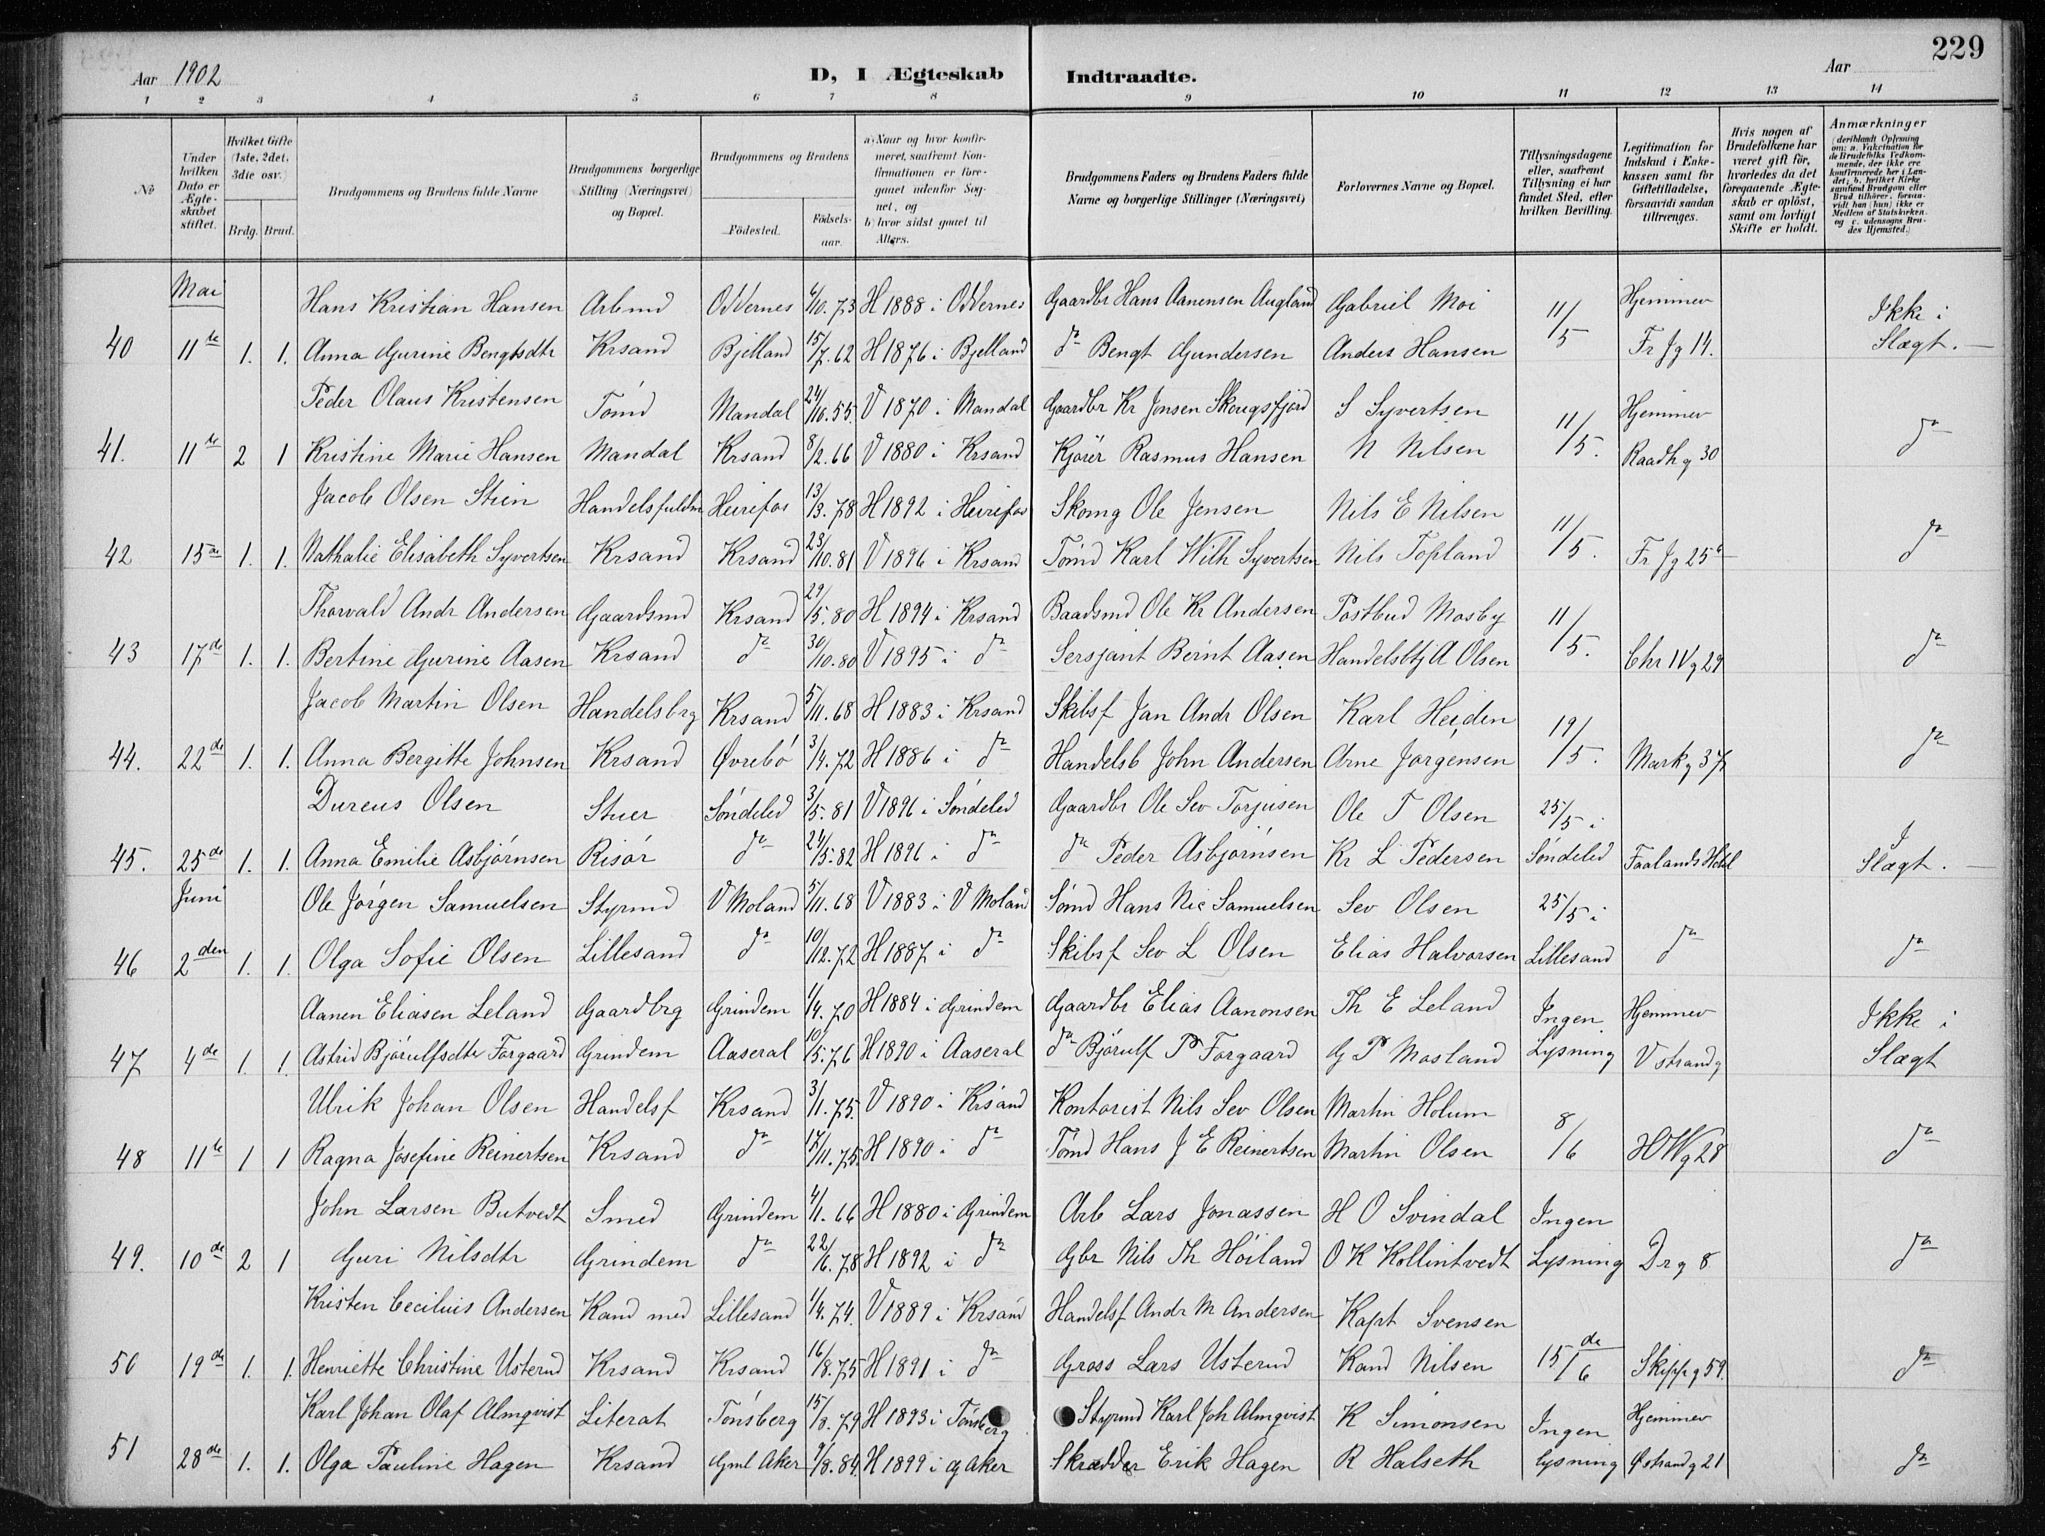 229
Aar 1902 D, I Ægteskab Indtraadte. Aar
1 2 3 4 5 6 7 8 9 10 11 12 13 14
No
Under hvilken Dato er Ægteskabet stiftet.
Hvilket Gifte (1ste, 2det, 3die osv.)
Brdg. Brud.
Brudgommens og Brudens fulde Navne
Brudgommens borgerlige Stilling (Næringsvei) og Bopæl.
Brudgommens og Brudens
Födested. Födselsaar.
a) Naar og hvor konfirmeret, saafremt Konfirmationen er foregaaet udenfor Sognet, og
b) hvor sidst gaaet til Alters.
Brudgommens Faders og Brudens Faders fulde Navne og borgerlige Stillinger (Næringsvei)
Forlovernes Navne og Bopæl.
Tillysningsdagene eller, saafremt Tillysning ei har fundet Sted, efter hvilken Bevilling.
Legitimation for Indskud i Enkekassen samt for Giftetilladelse, forsaavidt saadan tiltrænges.
Hvis nogen af Brudefolkene har været gift för, hvorledes da det foregaaende Ægteskab er oplöst, samt om lovligt Skifte er holdt.
Anmærkninger
(deriblandt Oplysning om: a. Vakcination for de Brudefolks Vedkommende, der ikke ere konfirmerede her i Landet; b. hvilket Kirkesamfund Brudgom eller Brud tilhörer, forsaavidt han (hun) ikke er Medlem af Statskirken og c. udensogns Brudes Hjemsted.)
Mai
Hans Kristian Hansen Arbmd Oddernes 6/10.73 H 1888 i Oddernes Gaardbr Hans Aanensen Augland Gabriel Moi 11/5 Hjemmev Ikke i
40 11te 1. 1. Anna Gurine Bengtsdtr Krsand Bjelland 15/7.62 H 1876 i Bjelland do Bengt Gundersen Anders Hansen Fr Jg 14. Slægt.
Peder Olaus Kristensen Tømd Mandal 24/10.55. V 1870 i Mandal Gaardbr Kr Jensen Skougsfjord S Syvertsen 11/5. Hjemmev
41. 11te 2 1 Kristine Marie Hansen Mandal Krsand 8/2.66 V 1880 i Krsand Kjörer Rasmus Hansen N Nilsen Raadhg 30 do
Jacob Olsen Stien Handelsfuldm Heirefos 13/3.78 H 1892 i Heirefos Skomg Ole Jensen Nils E Nilsen 11/5.
42 15de 1. 1. Nathalie Elisabeth Syvertsen Krsand Krsand 23/10.81 V 1896 i Krsand Tømd Karl Wilh Syvertsen Nils Topland Fr Jg 25b do
Thorvald Andr Andersen Gaardsmd Krsand 29/5.80 H 1894 i Krsand Baadsmd Ole Kr Andersen Postbud Mosby 11/5.
43 17de 1. 1. Bertine Gurine Aasen Krsand do 30/10.80 V 1895 i do Sersjant Bernt Aasen Handelsbtj A Olsen Chr IVg 29 do
Jacob Martin Olsen Handelsbrg Krsand 5/11.68 H 1883 i Krsand Skibsf Jan Andr Olsen Karl Heiden 19/5.
44. 22de 1. 1. Anna Bergitte Johnsen Krsand Øvrebö 3/4.72 H 1886 i do Handelsb John Andersen Arne Jørgensen Markg 37 do
Dureus Olsen Stuer Söndeled 3/5.81 V 1896 i Söndeled Gaardbr Ole Sev Torjusen Ole T Olsen 25/5 i I
45. 25de 1. 1. Anna Emilie Asbjørnsen Risør do 24/5.82 H 1896 i do do Peder Asbjørnsen Kr L Pedersen Søndeled Faalands Hotel Slægt.
Juni
Ole Jørgen Samuelsen Styrmd V Moland 5/11.68 V 1883 i V Moland Sømd Hans Nic Samuelsen Sev Olsen 25/5 i
46 2den 1. 1. Olga Sofie Olsen Lillesand do 10/12.72 H 1887 i do Skibsf Sev L Olsen Elias Halvorsen Lillesand do do
Aanen Eliasen Leland Gaardbrg Grindem 1/4.70 H 1884 i Grindem Gaardbr Elias Aanonsen Th E Leland Ingen Hjemmev Ikke i
47 4de 1. 1. Astrid Bjørulfsdtr Forgaard Grindem Aaseral 10/5.76 H 1890 i Aaseral do Bjørulf P Forgaard G P Mosland Lysning V strandg Slægt
Ulrik Johan Olsen Handelsf Krsand 3/1.75. V 1890 i Krsand Kontorist Nils Sev Olsen Martin Holum 8/6
48 11te 1 1 Ragna Josefine Reinertsen Krsand do 17/11.75. H 1890 i do Tømd Hans J E Reinertsen Martin Olsen HWg 28 do
John Larsen Butvedt Smed Grindem 4/1.66 H 1880 i Grindem Arb Lars Jonassen H O Svindal Ingen
49. 10de 2 1 Guri Nilsdtr Grindem do 22/6.78 H 1892 i do Gbr Nils Th Høiland O K Kollintvedt Lysning Drg 8 do
Kristen Cecilius Andersen Kand med Lillesand 1/4.74. V 1889 i Krsand Handelsf Andr M Andersen Kapt Svensen
50 19de 1. 1. Henriette Christine Usterud Krsand Krsand 16/8.75 H 1891 i do Gross Lars Usterud Kand Nilsen 15de/6 Skippg 59. do
Karl Johan Olaf Almqvist Literat Tønsberg 15/8.79 H 1893 i Tønsberg Styrmd Karl Joh Almqvist K Simonsen Ingen Hjemmev
51 28de 1. 1. Olga Pauline Hagen Krsand Gml Aker 9/8.84. H 1899 i g Aker Skrædder Erik Hagen R Halseth lysning Østrandg 21 do